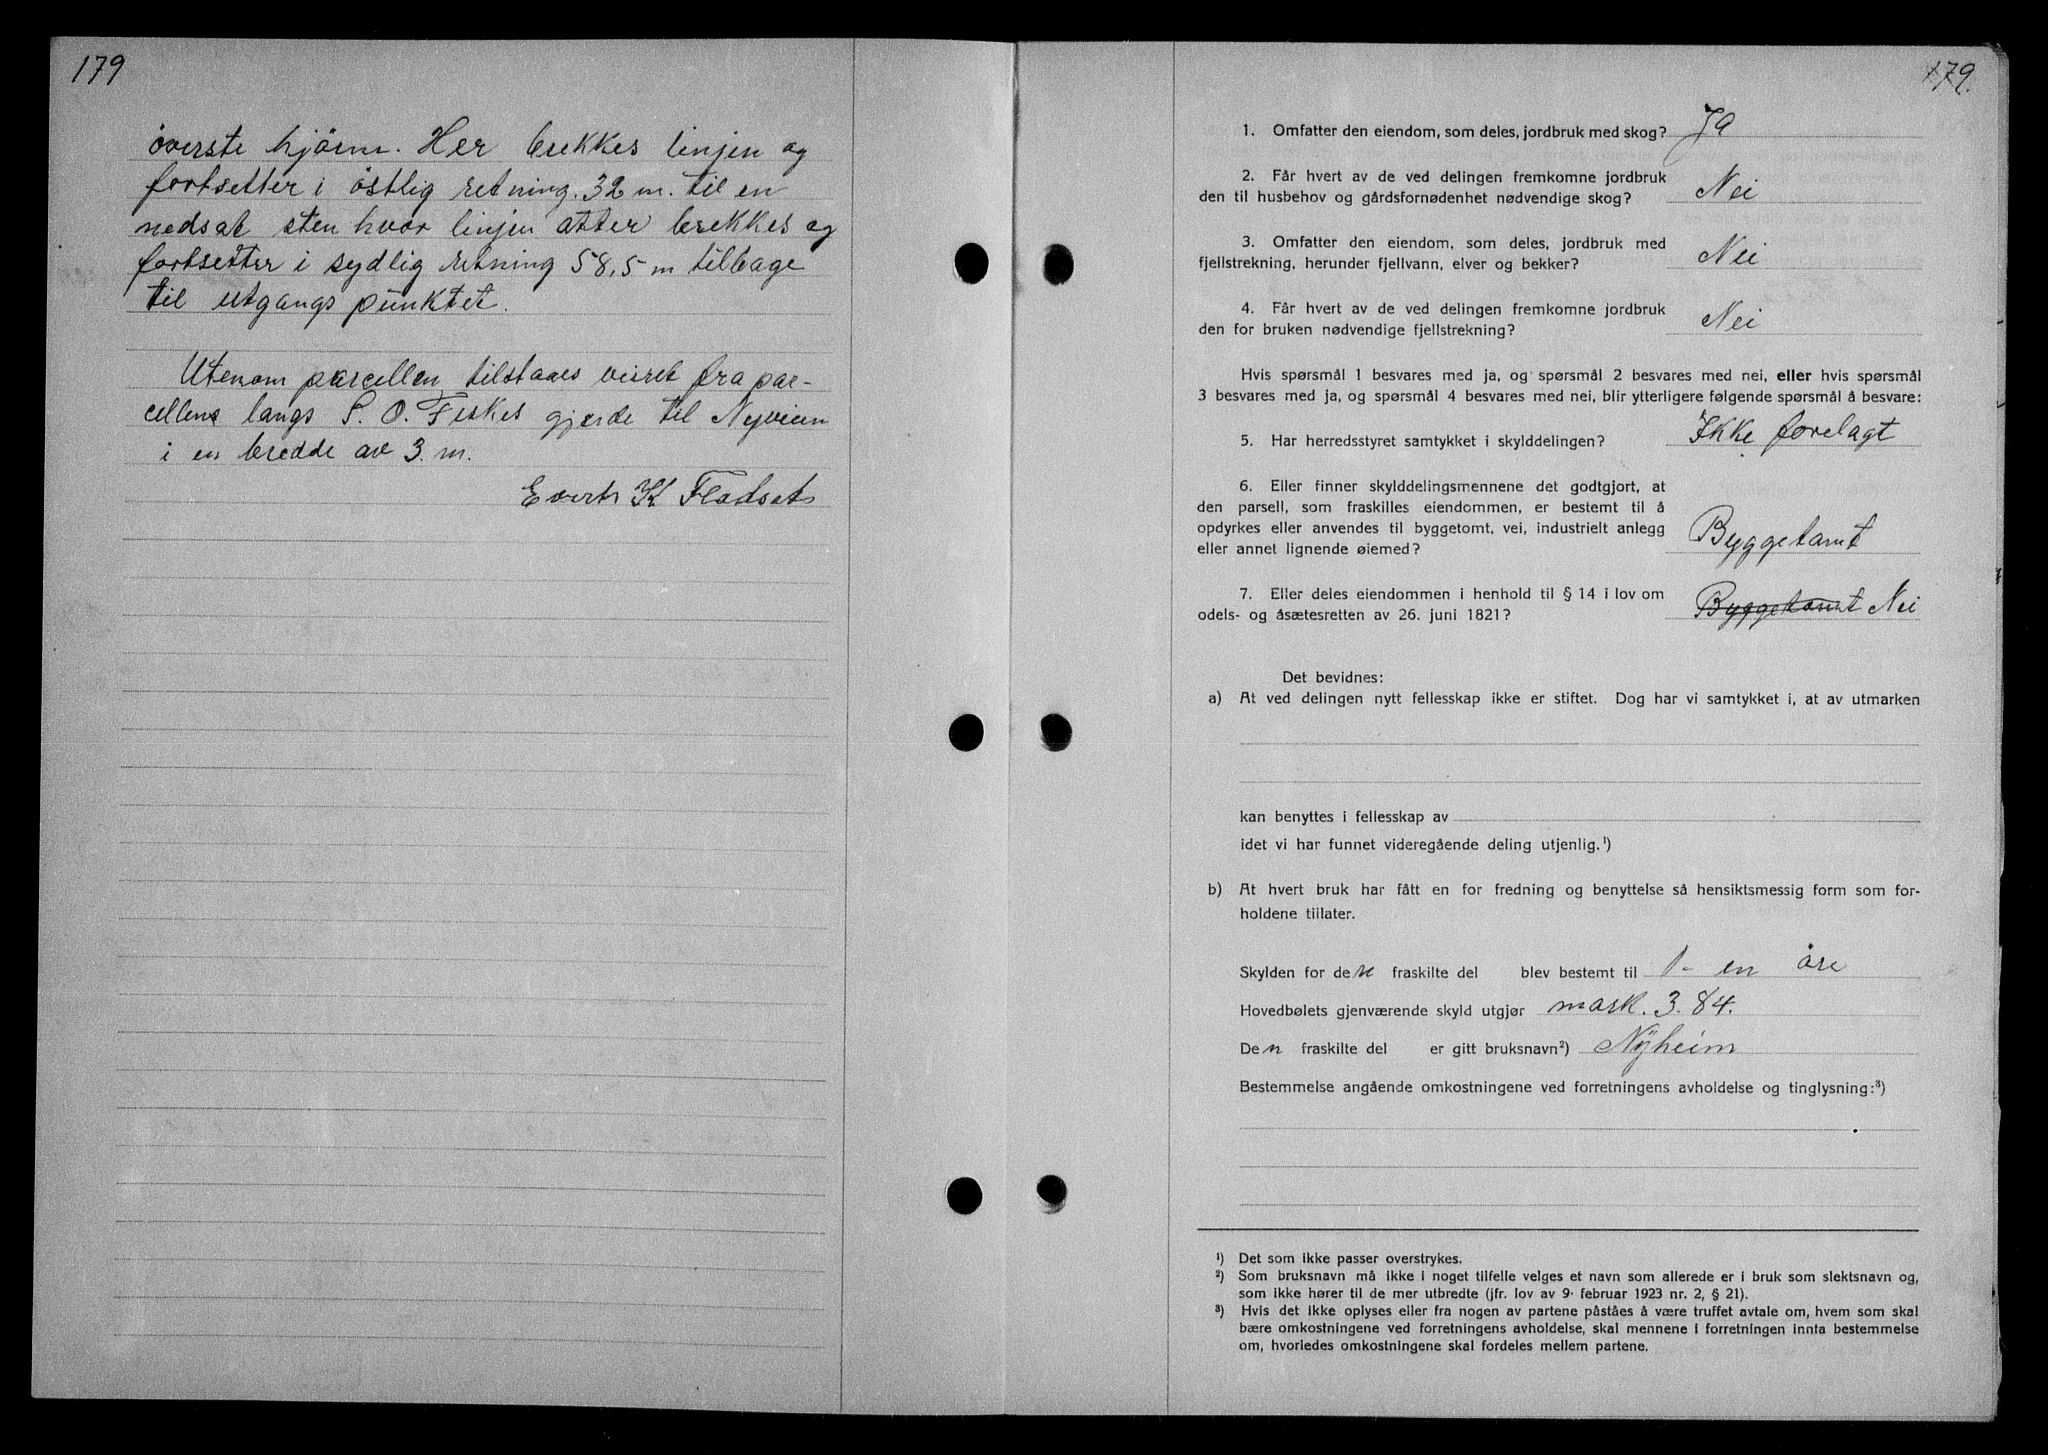 179
överste hjörne. Her brekkes linjen og
fortsetter i östlig retning. 32 m. til en
nedsat sten hvor linjen atter brekkes og
fortsetter i sydlig retning 58,5 m tilbage
til utgangs punktet.
Utenom parcellen tilstaaes veiret fra par-
cellens langs S. O. Fiskes gjerde til Nyveien
i en bredde av 3. m.
Evert K Fladset
179.
1. Omfatter den eiendom, som deles, jordbruk med skog? Ja
2. Får hvert av de ved delingen fremkomne jordbruk
den til husbehov og gårdsfornødenhet nødvendige skog? Nei
3. Omfatter den eiendom, som deles, jordbruk med
fjellstrekning, herunder fjellvann, elver og bekker? Nei
4. Får hvert av de ved delingen fremkomne jordbruk
den for bruken nødvendige fjellstrekning? Nei
Hvis spørsmål 1 besvares med ja, og spørsmål 2 besvares med nei, eller hvis spørsmål
3 besvares med ja, og spørsmål 4 besvares med nei, blir ytterligere følgende spørsmål å besvare:
5. Har herredsstyret samtykket i skylddelingen? Ikke forelagt
6. Eller finner skylddelingsmennene det godtgjort, at
den parsell, som fraskilles eiendommen, er bestemt til å
opdyrkes eller anvendes til byggetomt, vei, industrielt anlegg
eller annet lignende øiemed? Byggetomt
7. Eller deles eiendommen i henhold til § 14 i lov om
odels- og åsætesretten av 26. juni 1821? Byggetomt Nei
Det bevidnes:
a) At ved delingen nytt fellesskap ikke er stiftet. Dog har vi samtykket i, at av utmarken
kan benyttes i fellesskap av
idet vi har funnet videregående deling utjenlig.¹)
b) At hvert bruk har fått en for fredning og benyttelse så hensiktsmessig form som for-
holdene tillater.
Skylden for den fraskilte del blev bestemt til 1- en öre
Hovedbølets gjenværende skyld utgjør mark. 3.84.
Den fraskilte del er gitt bruksnavn²) Nyheim
Bestemmelse angående omkostningene ved forretningens avholdelse og tinglysning:³)
¹) Det som ikke passer overstrykes.
²) Som bruksnavn må ikke i noget tilfelle velges et navn som allerede er i bruk som slektsnavn og,
som ikke hører til de mer utbredte (jfr. lov av 9. februar 1923 nr. 2, § 21).
³) Hvis det ikke oplyses eller fra nogen av partene påståes å være truffet avtale om, hvem som skal
bære omkostningene ved forretningens avholdelse, skal mennene i forretningen innta bestemmelse
om, hvorledes omkostningene skal fordeles mellem partene.